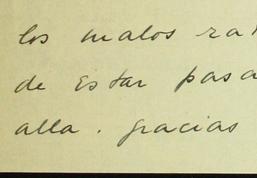 los malos rat
de estar pasa
alla. gracias